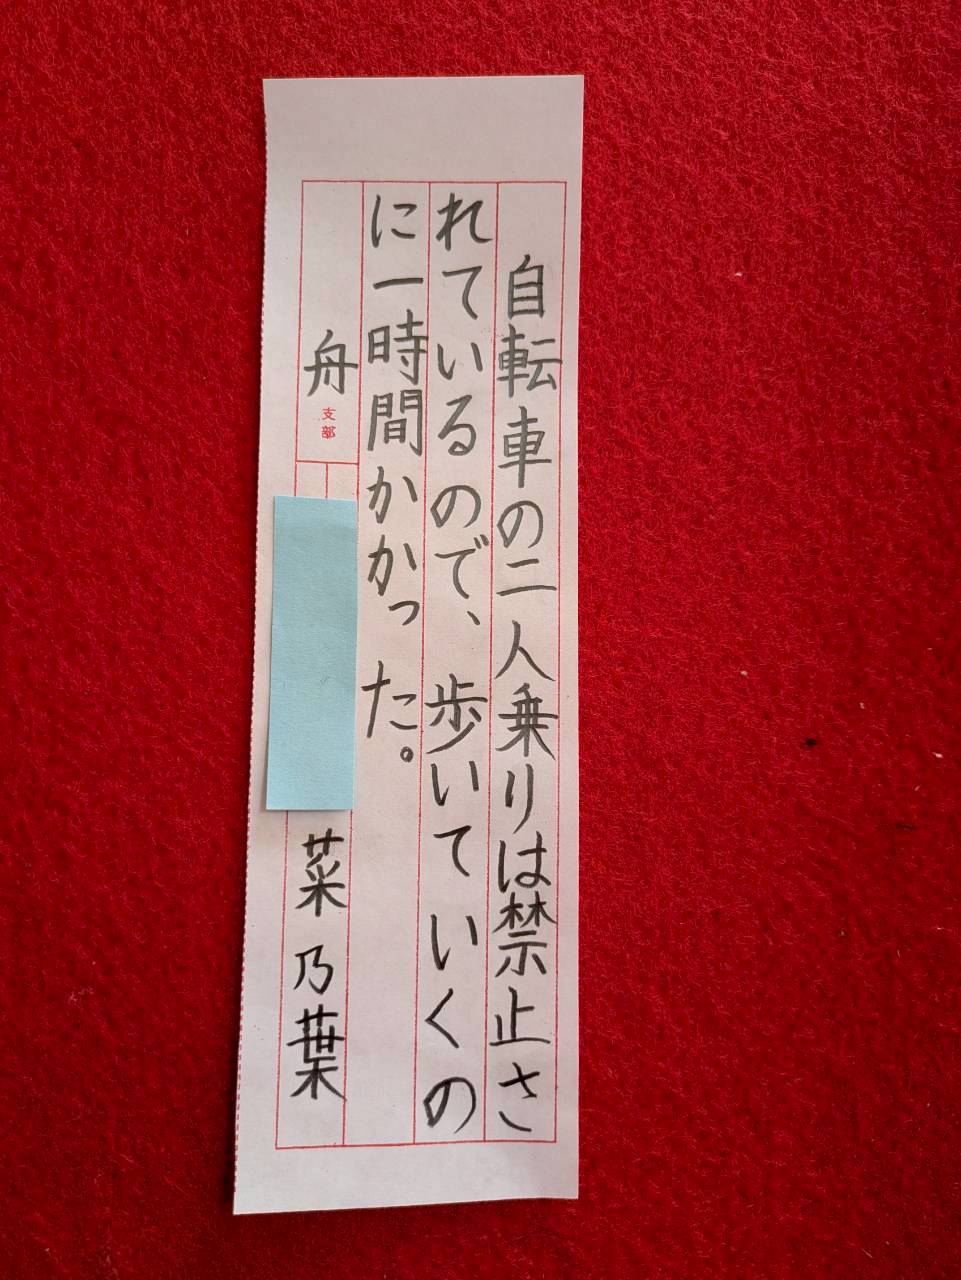 自転車の二人乗りは禁止さ
れているので、歩いていくの
に一時間かかった。
舟支部
菜乃葉